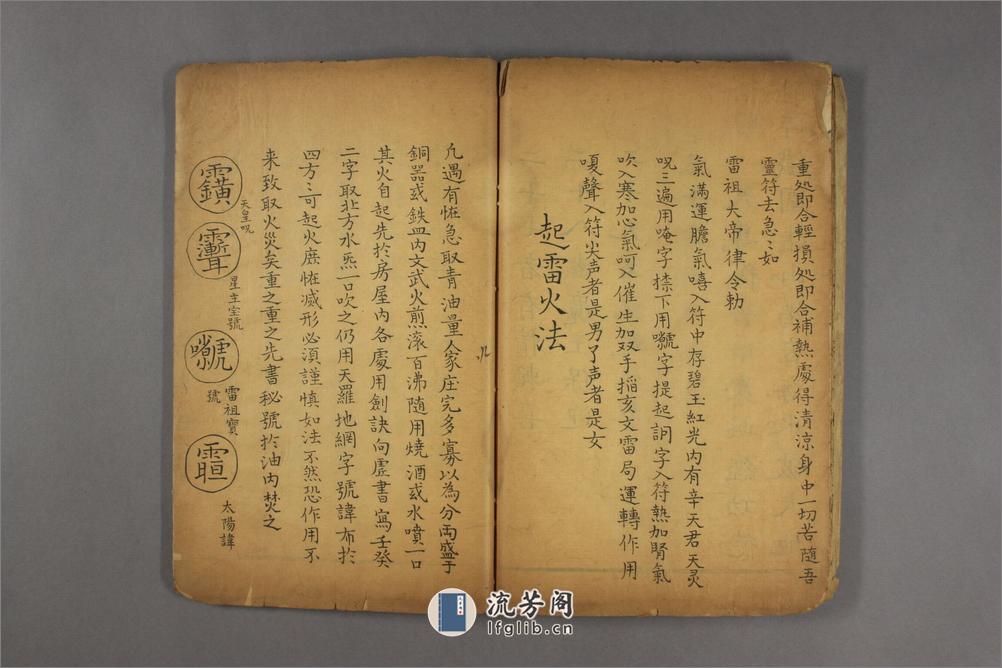 重処即合輕損処即合補熱處得清涼身中一切苦隨吾
靈符去急〻如
雷祖大帝律令勅
氣滿運膽氣嘻入符中存碧玉紅光內有辛天君天灵
呪三遍用唵字揼下用字提起詗字入符熱加腎氣
吹入寒加心氣呵入催生加双手搯亥文雷局運轉作用
嗄聲入符尖声者是男了声者是女
起雷火法
凢遇有恠急取青油量人家庄完多寡以為分両盛于
銅器或鉄皿內文武火煎滚百沸隨用燒酒或水噴一口
其火自起先於房屋內各處用劍訣向虛書寫壬癸
二字取北方水炁一口吹之仍用天羅地網字號諱布於
四方〻可起火庶恠滅形必須謹慎如法不然恐作用不
来致取火災矣重之重之先書秘號於油內焚之
天皇呪
星主宝號
雷祖寶
號
太陽諱
流芳阁
lfglib.cn